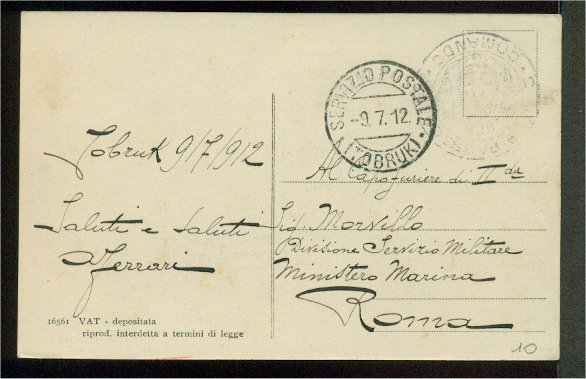 COMANDO
SERVIZIO POSTALE
-9.7.12
(TOBRUK)
Tobruk 9/7/912
Saluti e saluti
Ferrari
Al Capofuriere di IIda
Sig. Morvillo
Divisione Servizio Militare
Ministero Marina
Roma
16561 VAT - depositata
riprod. interdetta a termini di legge
10